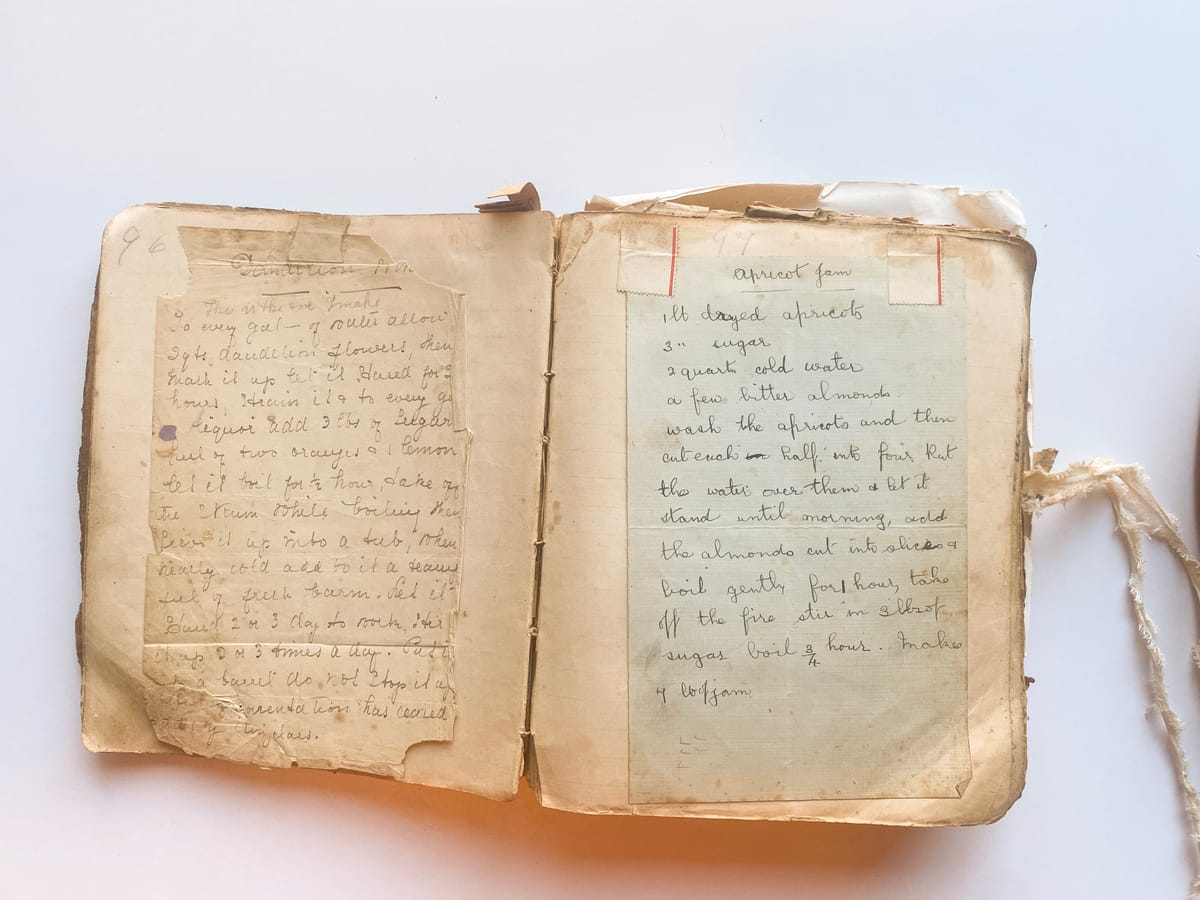 96
Dandelion
This is the one I make
To every gal - of water allow
3 qts dandelion flowers, then
mash it up let it stand for
hours, strain it & to every
liquor add 3 lbs of Sugar
peel of two oranges & 1 lemon
let it boil for ½ hour, take off
the steam while boiling then
it up into a tub, when
nearly cold add to it a
of fresh barm. Let it
stand 2 or 3 day to work, stir
it up 2 or 3 times a day. Put
a barrel do not stop it
fermentation has ceased
97
Apricot Jam
1 lb dryed apricots
3 " sugar
2 quarts cold water
a few bitter almonds.
wash the apricots and then
cut each half into four Put
the water over them & let it
stand until morning, add
the almonds cut into slices &
boil gently for 1 hour, take
off the fire stir in 3 lbs of
sugar boil ¾ hour. Makes
7 lb of jam